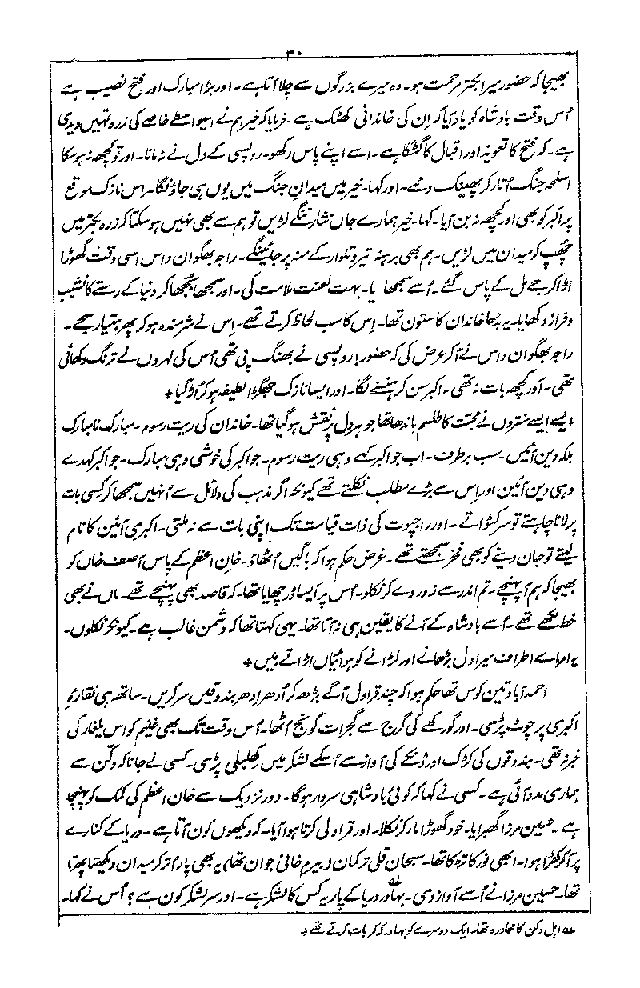 ۳۰
بھیجا کہ حضور میرا بکتر مرحمت ہو۔ وہ میرے بزرگوں سے چلا آتا ہے۔ اور بڑا مبارک اور فتح نصیب ہے
اُس وقت بادشاہ کو یاد آیا کہ ان کی خاندانی کھٹک ہے۔ فرمایا کہ خیر ہم نے اسی واسطے خاصے کی زرہ تمہیں دیدی
ہے۔ کہ فتح کا تعویذ اور اقبال کا گٹکا ہے۔ اسے اپنے پاس رکھو۔ روپسی کے دل نے نہ مانا۔ اور تو کچھ نہ ہو سکا
اسلحہ جنگ اُتار کر پھینک دئے۔ اور کہا۔ خیر میں میدانِ جنگ میں یوں ہی جاؤنگا۔ اس نازک موقع
پر اکبر کو بھی اور کچھ نہ بن آیا۔ کہا۔ خیر ہمارے جاں نثار ننگے لڑیں تو ہم سے بھی نہیں ہو سکتا کہ زرہ بکتر میں
چھپ کر میدان میں لڑیں۔ ہم بھی برہنہ تیر و تلوار کے منہ پر جائینگے۔ راجہ بھگوان داس اسی وقت گھوڑا
اُڑا کر جے مل کے پاس گئے۔ اُسے سمجھایا۔ بہت لعنت ملامت کی۔ اور سمجھا بجھا کر دنیا کے رستے کا نشیب
و فراز دکھایا۔ یہ بڈھا خاندان کا ستون تھا۔ اس کا سب لحاظ کرتے تھے۔ اس نے شرمندہ ہو کر پھر ہتیار سجے۔
راجہ بھگوان داس نے آکر عرض کی کہ حضور! روپسی نے بھنگ پی تھی اُس کی لہروں نے ترنگ دکھائی
تھی۔ اور کچھ بات نہ تھی۔ اکبر سن کر ہنسنے لگا۔ اور ایسا نازک جھگڑا لطیفہ ہو کر اُڑ گیا ٭
ایسے ایسے منتروں نے محبت کا طلسم باندھا تھا جو ہر دل پر نقش ہو گیا تھا۔ خاندان کی ریت رسوم۔ مبارک نامبارک
بلکہ دین آئین۔ سب برطرف۔ اب جو اکبر کہے وہی ریت رسوم۔ جو اکبر کی خوشی وہی مبارک۔ جو اکبر کہدے
وہی دین آئین اور اس سے بڑے مطلب نکلتے تھے کیونکہ اگر مذہب کی دلائل سے اُنہیں سمجھا کر کسی بات
پر لانا چاہتے تو سر کٹواتے۔ اور راجپوت کی ذات قیامت تک اپنی بات سے نہ ٹلتی۔ اکبری آئین کا نام
لیتے تو جان دینے کو بھی فخر سمجھتے تھے۔ غرض حکم ہوا کہ باگیں اُٹھاؤ۔ خان اعظم کے پاس آصف خاں کو
بھیجا کہ ہم آپہنچے۔ تم اندر سے زور دے کر نکلو۔ اُس پر ایسا ڈر چھایا تھا۔ کہ قاصد بھی پہنچے تھے۔ ماں نے بھی
خط لکھے تھے۔ اُسے بادشاہ کے آنے کا یقین ہی نہ آتا تھا۔ یہی کہتا تھا کہ دشمن غالب ہے۔ کیونکر نکلوں۔
یہ امراے اطراف میرا دل بڑھانے اور لڑانے کو ہوائیاں اڑاتے ہیں ٭
احمد آباد تین کوس تھا حکم ہوا کہ چند قراول آگے بڑھ کر اِدھر اُدھر بندوقیں سر کریں۔ ساتھ ہی نقارۂ
اکبری پر چوٹ پڑی۔ اور گورکھے کی گرج سے گجرات گونج اُٹھا۔ اُس وقت تک بھی غنیم کو اس یلغار کی
خبر نہ تھی۔ بندوقوں کی کڑک اور ڈنکے کی آواز سے اُسکے لشکر میں کھلبلی پڑی۔ کسی نے جانا کہ دکن سے
ہماری مدد آئی ہے۔ کسی نے کہا کہ کوئی بادشاہی سردار ہوگا۔ دور نزدیک سے خان اعظم کی کمک کو پہنچا
ہے۔ حسین مرزا گھبرایا۔ خود گھوڑا مار کر نکلا۔ اور قراولی کرتا ہوا آیا۔ کہ دیکھوں کون آتا ہے۔ دریا کے کنارے
پر آکر کھڑا ہوا۔ ابھی نور کا تڑکا تھا۔ سبحان قلی ترکمان (بیرم خانی جوان تھا) یہ بھی پار اُتر کر میدان دیکھتا پھرتا
تھا۔ حسین مرزا نے اُسے آواز دی۔ بہادر! دریا کے پار یہ کس کا لشکر ہے۔ اور سر لشکر کون ہے؟ اُس نے کہا۔
؎ اہل دکن کا محاورہ تھا۔ ایک دوسرے کو بہادر کہہ کر بات کرتے تھے ٭